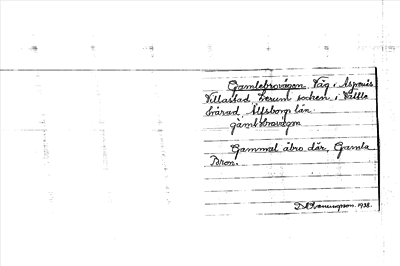 Gamlebrovägen. Väg i Aspenäs
Villastad, Lerum socken, i Vättle
härad Älfsborgs län.
gàmləbrovägen
Gammal åbro där, Gamla
Bron.
1938.